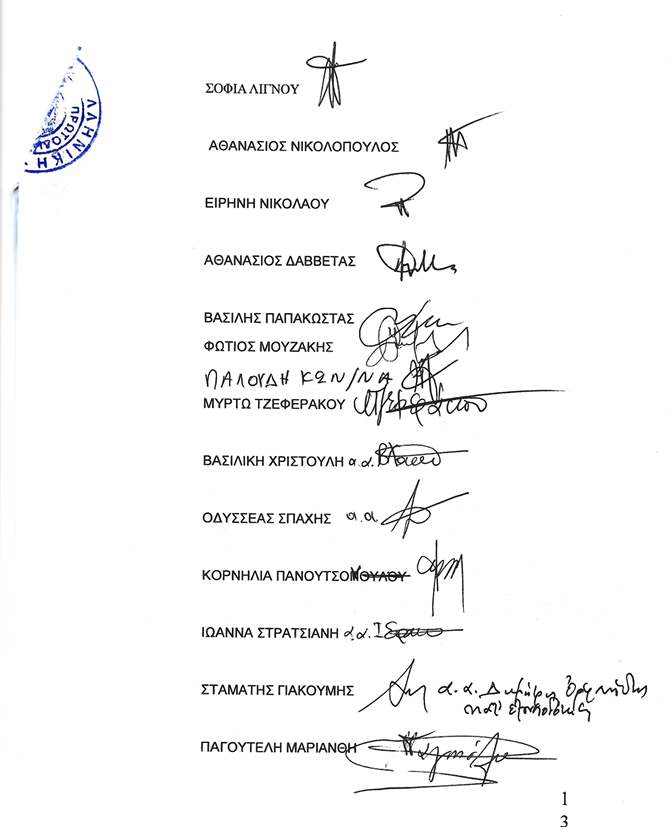 ΛΛΗΝΙΚΗ
ΠΡΩΤΟΔΙ
ΣΟΦΙΑ ΛΙΓΝΟΥ
ΑΘΑΝΑΣΙΟΣ ΝΙΚΟΛΟΠΟΥΛΟΣ
ΕΙΡΗΝΗ ΝΙΚΟΛΑΟΥ
ΑΘΑΝΑΣΙΟΣ ΔΑΒΒΕΤΑΣ
ΒΑΣΙΛΗΣ ΠΑΠΑΚΩΣΤΑΣ
ΦΩΤΙΟΣ ΜΟΥΖΑΚΗΣ
ΠΑΛΟΥΔΗ ΚΩΝ/ΝΑ
ΜΥΡΤΩ ΤΖΕΦΕΡΑΚΟΥ
ΒΑΣΙΛΙΚΗ ΧΡΙΣΤΟΥΛΗ α.α.
ΟΔΥΣΣΕΑΣ ΣΠΑΧΗΣ α.α.
ΚΟΡΝΗΛΙΑ ΠΑΝΟΥΤΣΟΠΟΥΛΟΥ
ΙΩΑΝΝΑ ΣΤΡΑΤΣΙΑΝΗ α.α.
ΣΤΑΜΑΤΗΣ ΓΙΑΚΟΥΜΗΣ α.α.
ΠΑΓΟΥΤΕΛΗ ΜΑΡΙΑΝΘΗ
1
3